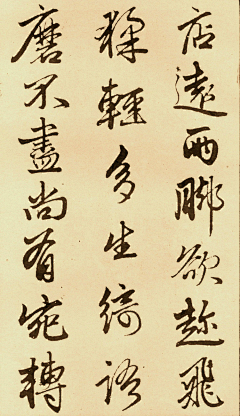 店遠兩脚欲趁飛
猱輕多生綺語
磨不盡尚有宛轉